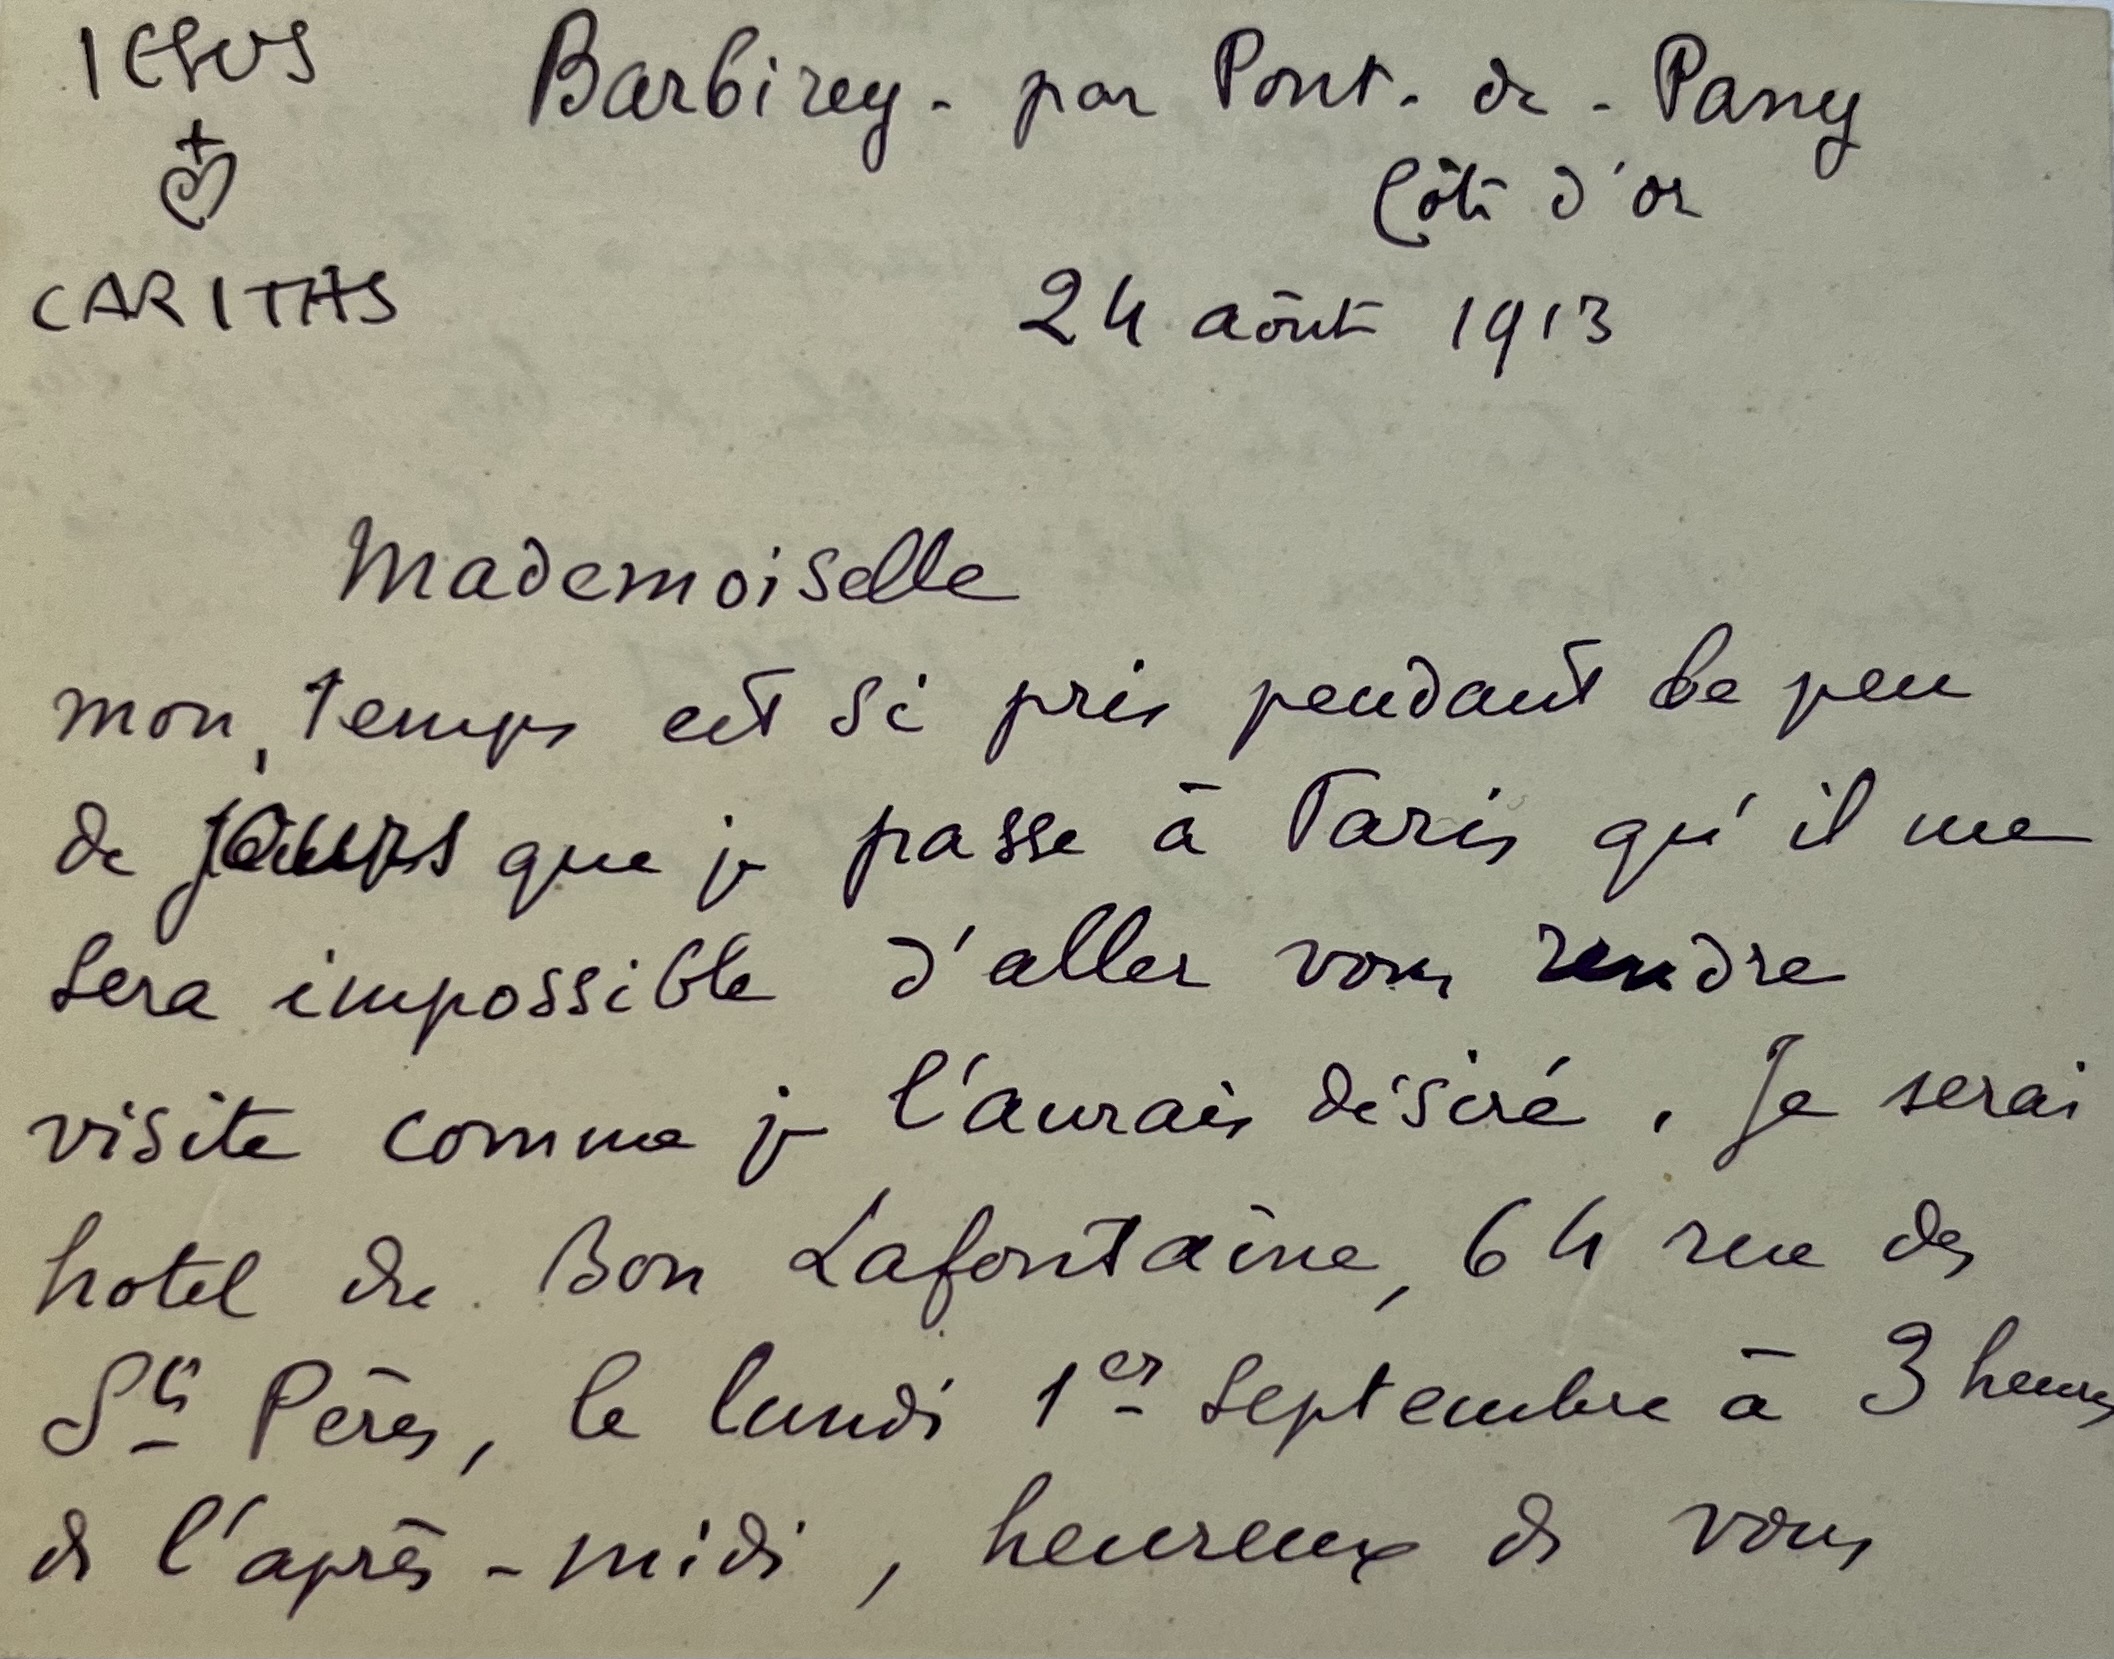 IESUS
CARITAS
Barbirey - par Pont - de - Pany
Côte d'or
24 août 1913
Mademoiselle
mon temps est si pris pendant le peu
de jours que je passe à Paris qu'il me
sera impossible d'aller vous rendre
visite comme je l'aurais désiré. Je serai
hotel du Bon Lafontaine, 64 rue des
Sts Pères, le lundi 1er septembre à 3 heures
de l'après-midi, heureux de vous